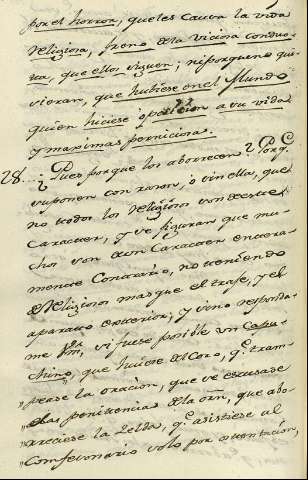 por el horror, que les causa la vida
religiosa, freno de la viciosa conduc-
ta, que ellos siguen; ni porque no qui-
sieran, que hubiese en el Mundo
quien hiciese oposicion a su vida
y maximas perniciosas.
28.... ¿Pues porque los aborrecen? Porq.e
suponen con razon, ó sin ella, que
no todos los religiosos son de este
Caracter, y se figuran que mu-
chos son de un Caracter entera-
mente Contrario, no teniendo
de Religiosos mas que el traje, y el
aparato exterior; y sino responda-
me Vm., si fuese posible un Capu-
"chino, que huiese del Coro, q.e tram-
"pease la oracion, que se escusase
"de las penitencias de la orn, que abo-
"rreciese la Zelda, q.e asistiese al
"Confesonario solo por ostentacion,